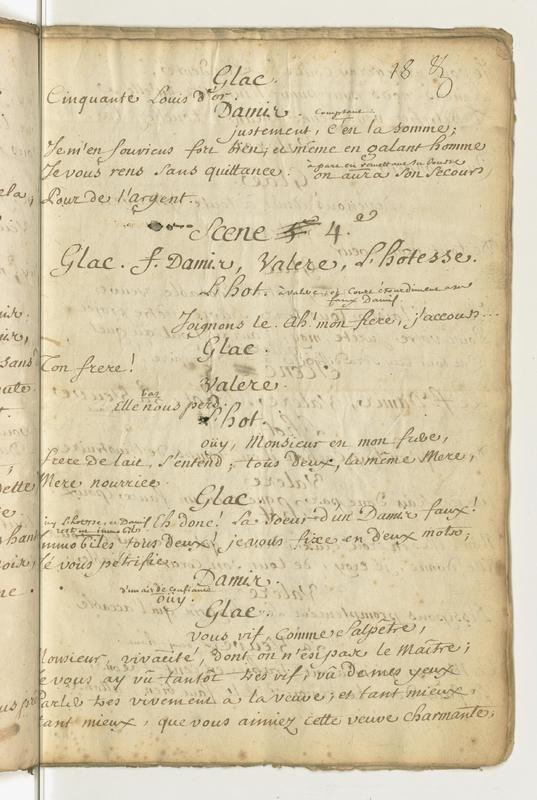 18
Glac.
Cinquante Louis d'or.
Damir. Comptant
justement, c'en la somme;
Je m'en souviens fort bien; et même en galant homme
Je vous rens sans quittance. apart en remettant sa bourse on aura son secours,
Pour de l'argent.
Scene 4.e
Glac. f. Damir, Valere, L'hôtesse.
L'hot. à valere et
faux Damis.
Joignons le. Ah! mon frere, j'accours...
Glac.
Ton frere!
Valere.
bas
elle nous perd.
L'hot.
oüy, Monsieur en mon frere,
frere de lait, s'entend; tous deux, la même Mere,
Mere nourrice.
Glac.
Eh donc! la soeur d'un Damir faux!
immobiles tous deux! je vous fixe en deux mots;
Je vous pétrifie.
Damir.
d'un air de confiance
oüy.
Glac.
vous vif, comme salpêtre,
Monsieur, vivacité, dont on n'est pas le Maître;
Je vous ay vû tantôt tres vif; vû de mes yeux
Parler tres vivement à la veuve; et tant mieux,
tant mieux, que vous aimiez cette veuve charmante,